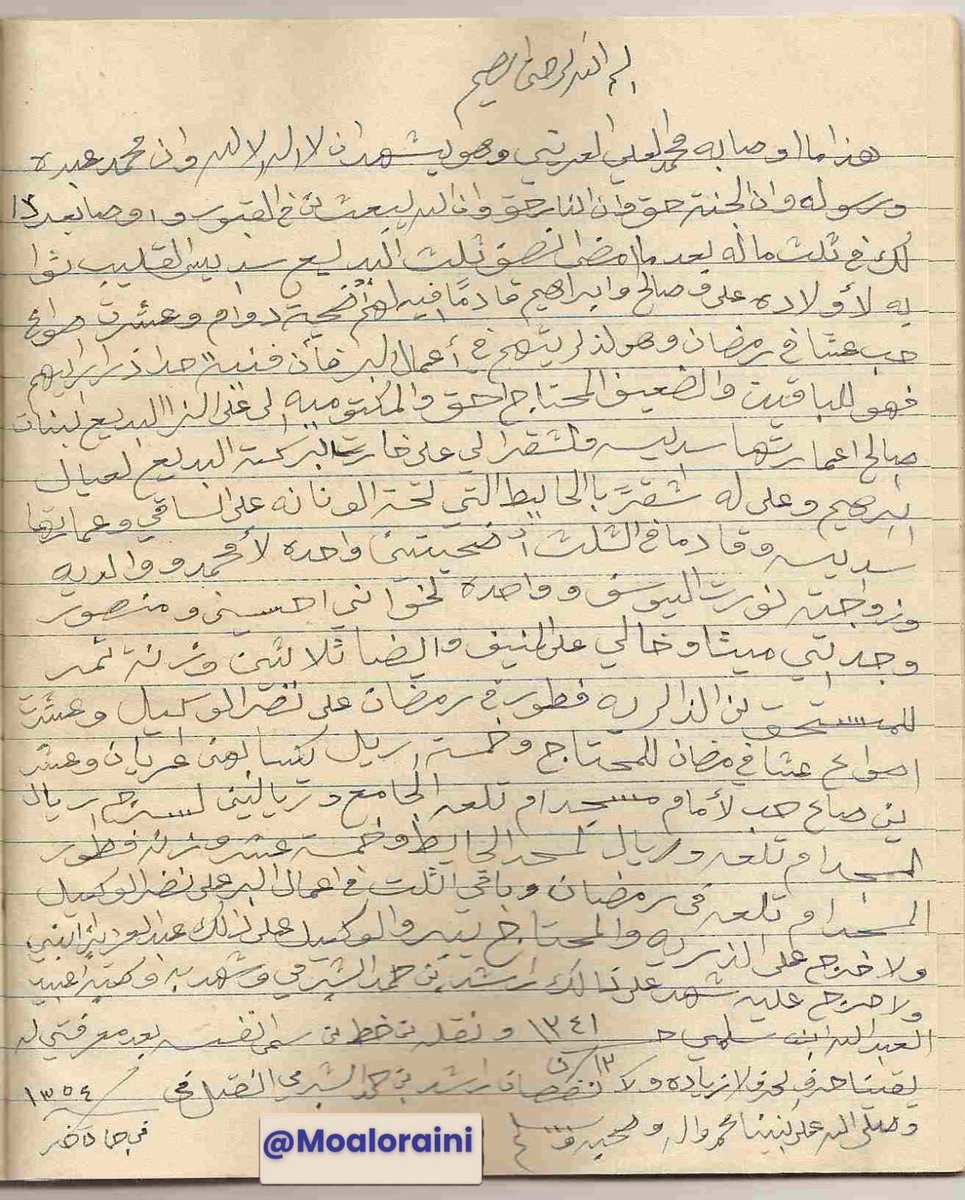 بسم الله الرحمن الرحيم
هذا ما اوصا به محمد العلي العريني وهو يشهد ان لا اله الا الله وان محمد عبده
ورسوله وان الجنة حق وان النار حق وان الله يبعث من في القبور واوصا بعد ذا
لك في ثلث ماله بعد ما امضى ثلث البديع سديس القليب ثوا
به لأولاده علي وصالح وابراهيم قادمًا فيه لهم أضحية دوام وعشرة صواع
حب عشا في رمضان وهو لذريتهم في أعمال البر فأن ابراهيم
فهو للباقين والضعيف المحتاج احق والمكتوميه الي على البديع لبنات
صالح اعمارتها سديس والشقرا الي على بركة البديع لعيال
ابرهيم وعلي له شقرًا بالحايط التي تحت الونانه على الساقي وعمارتها
سديس وقادما في الثلث أضحيتين واحده لأمحمد ووالديه
وزواجته نورت اليوسف وواحدة لخواني احسين ومنصور
وجدتي ميثا وخالي علي المنيف وايضا ثلاثين وزنة تمر
للمستحق من الذاريه فطور في رمضان على نضر الوكيل وعشرت
اصواع عشا في رمضان للمحتاج وخمسة اريل كسا لهن عريان وعشر
ين صاع حب لأمام مسجد ام تلعه الجامع وريالين لسراج اريال
لمسجد ام تلعه وريال لمسجد الحايط وخمسة عشر وزنه فطور
المسجد ام تلعه في رمضان وباقي الثلث في اعمال البر على نضر الوكيل
ولا حرج على الذريه والمحتاج والوكيل على ذالك عبد العزيز ابني
ولا حرج عليه شهد على ذالك ارشد بن حمد الشبرمي وشهد به وكتبه
العبد الله ابن سلمي حـ ١٣٤١ ونقله من خط من سمى نفسه بعد معرفتي له
يقينا حرف بحرف لا زياده ولا نقصان ارشد بن حمد الشبرمي النقل في ١٣٥٤
١٣
وصلى الله على نبينا محمد واله وصحبه وسلم
في جماد
@Moaloraini